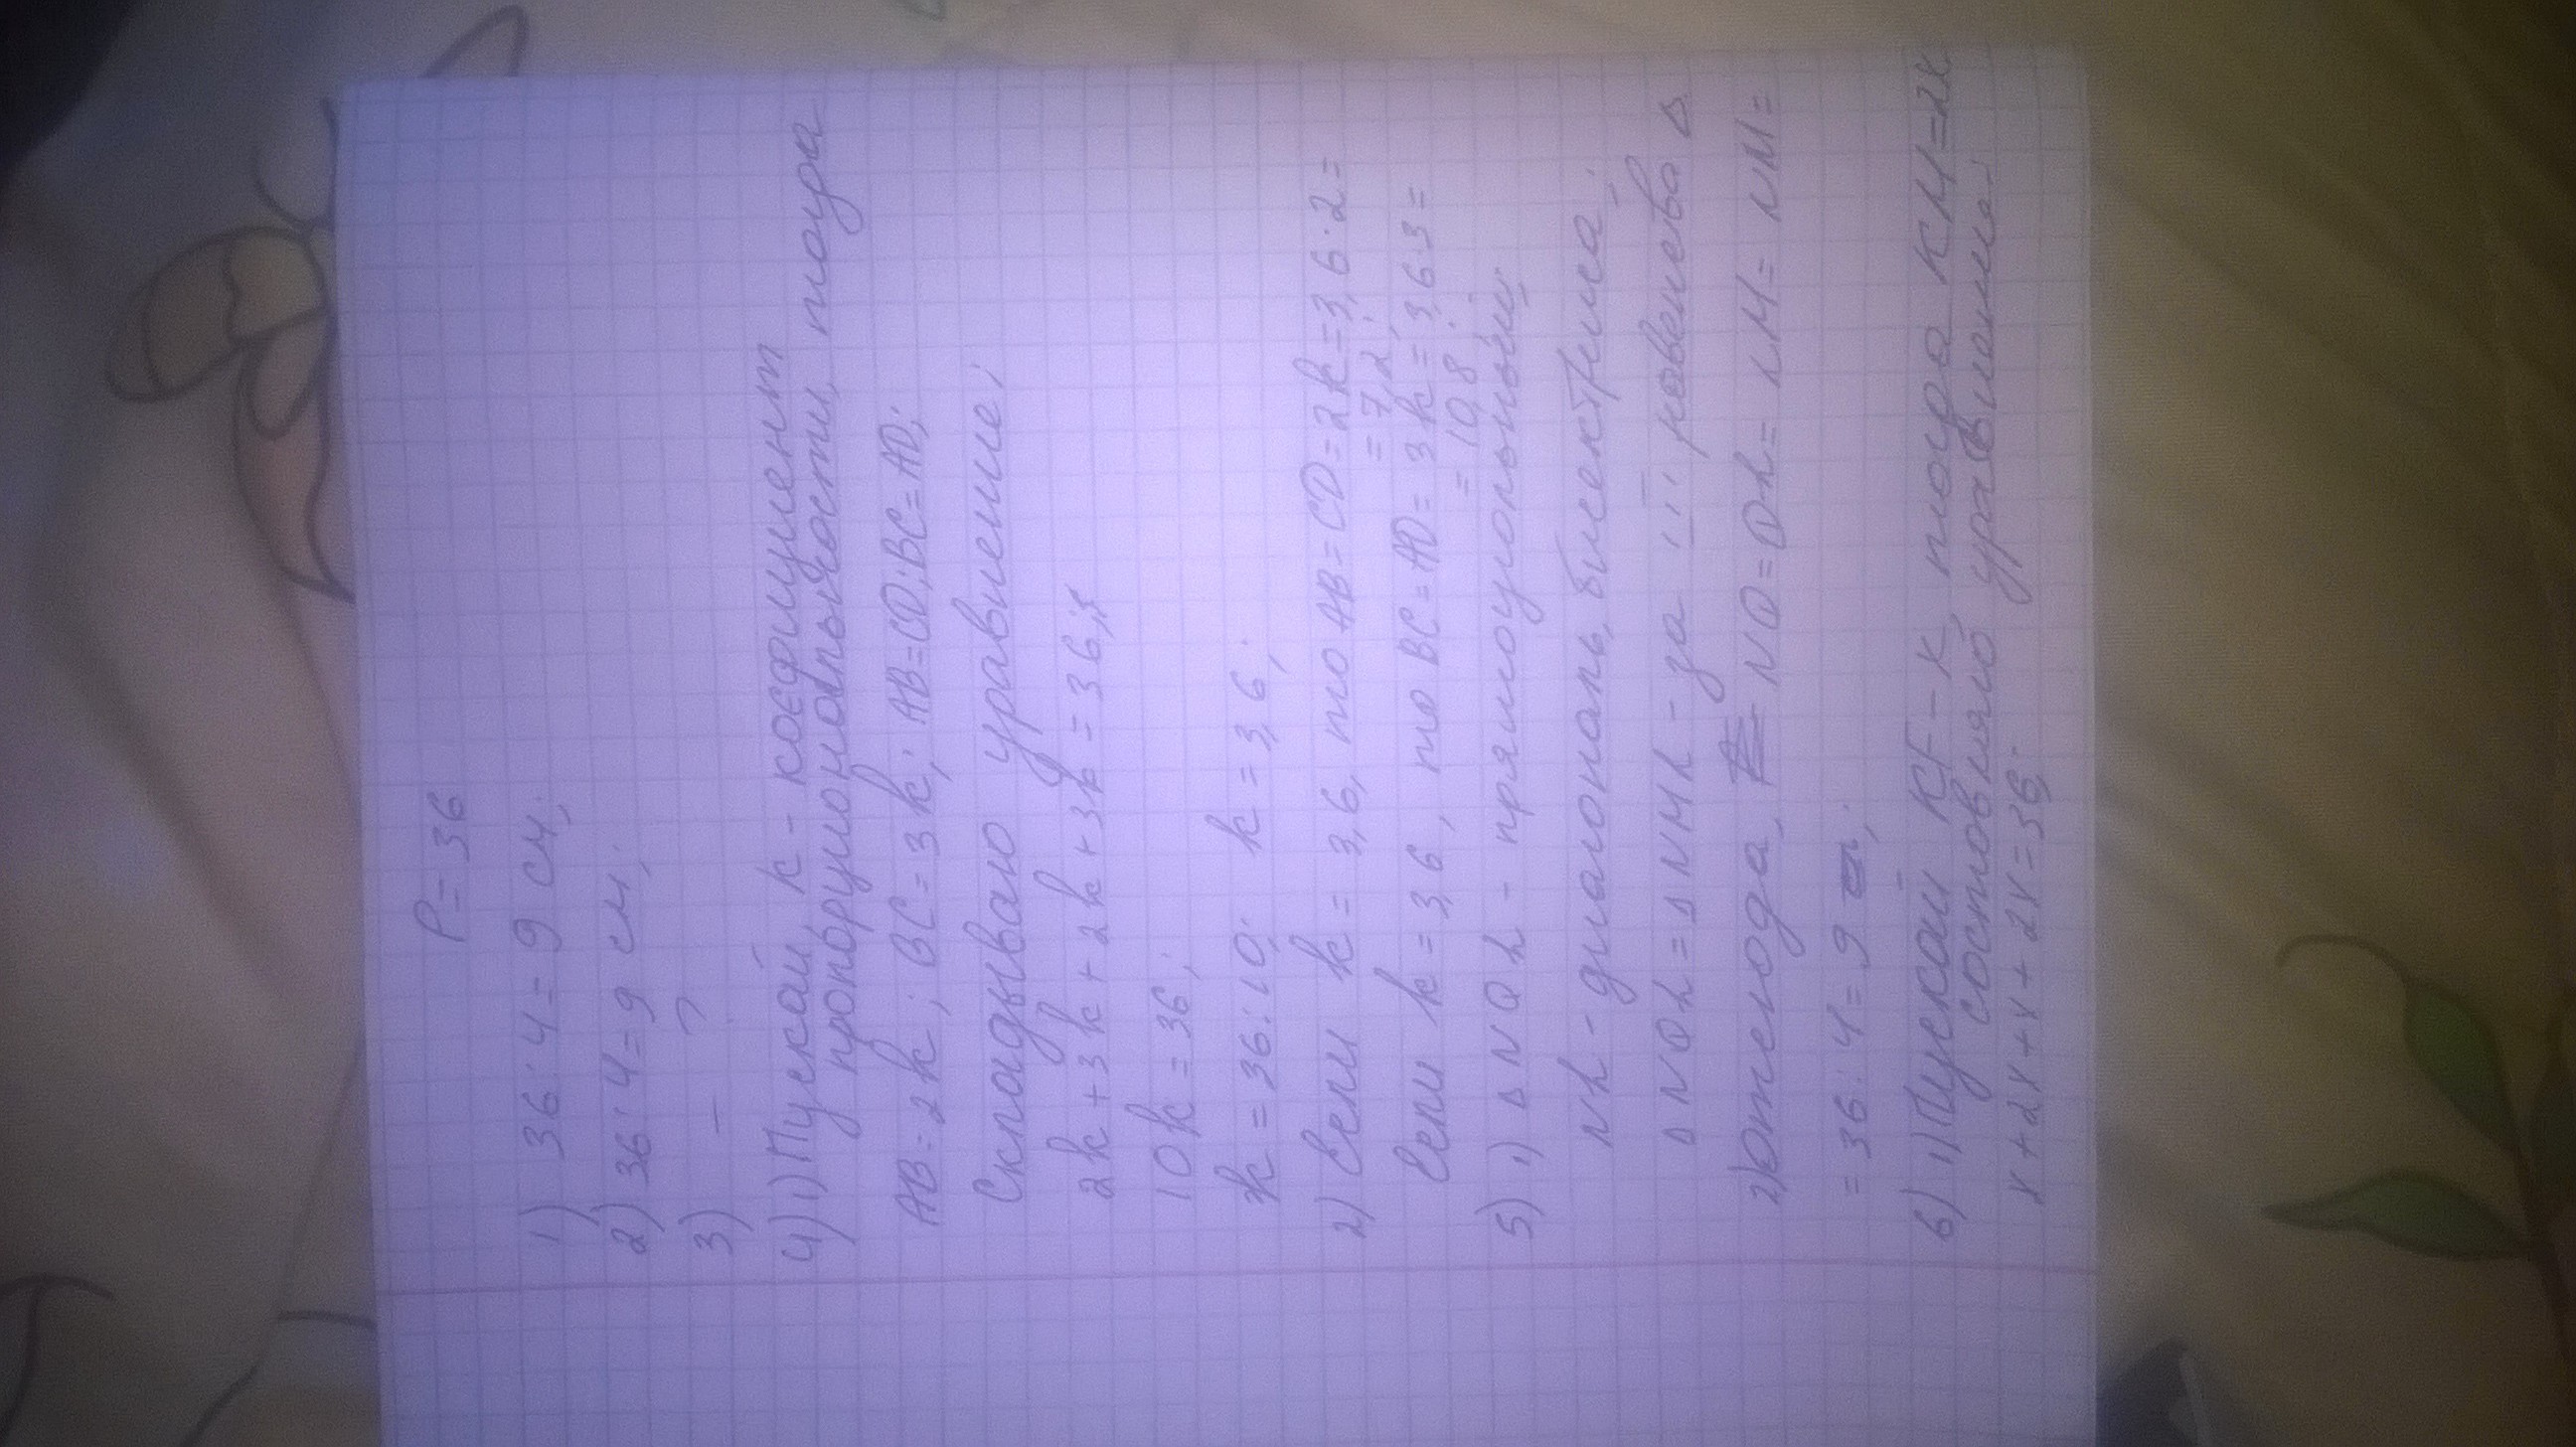 P = 36
1) 36 : 4 = 9 см;
2) 36 : 4 = 9 см;
3) – ?
4) 1) Пускай, k - коєфициент
пропорциональности, тогда
AB = 2k; BC = 3k; AB = CD; BC = AD;
Складываю уравнение;
2k + 3k + 2k + 3k = 36;
10k = 36;
k = 36 : 10; k = 3,6;
2) Если k = 3,6, то AB = CD = 2k = 3,6 · 2 =
= 7,2;
Если k = 3,6, то BC = AD = 3k = 3,6 · 3 =
= 10,8;
5) 1) Δ NOL - прямоугольный
NL - диагональ, биссектриса;
Δ NOL = Δ NML - за III равенства Δ
2) Отсюда, NO = OL = LM = NM =
= 36 : 4 = 9;
6) 1) Пускай KF - x, тогда KM = 2x
составляю уравнение:
x + 2x + x + 2x = 36;